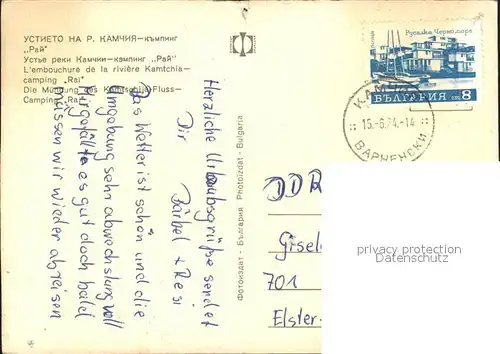 УСТИЕТО НА Р. КАМЧИЯ—къмпинг
„Рай"
Устье реки Камчии—кэмпинг „Рай"
L'embouchure de la rivière Kamtchia—
camping „Rai"
Die Mündung des Kamtschija-Fluss—
Camping „Rai"
Herzliche Urlaubsgrüße sendet
Dir
Bärbel + Resi
Das Wetter ist schön und die
Umgebung sehr abwechslungsvoll
Mir gefällt es gut doch bald
müssen wir wieder abreisen
Фотоиздат - България Photoizdat - Bulgaria
Русалка Черно море
поща
БЪЛГАРИЯ ст 8
КАМЧИЯ
:: 15.-6.74.-14 ::
ВАРНЕНСКИ
DDR
Gisel
701
Elster-
privacy protection
Datenschutz